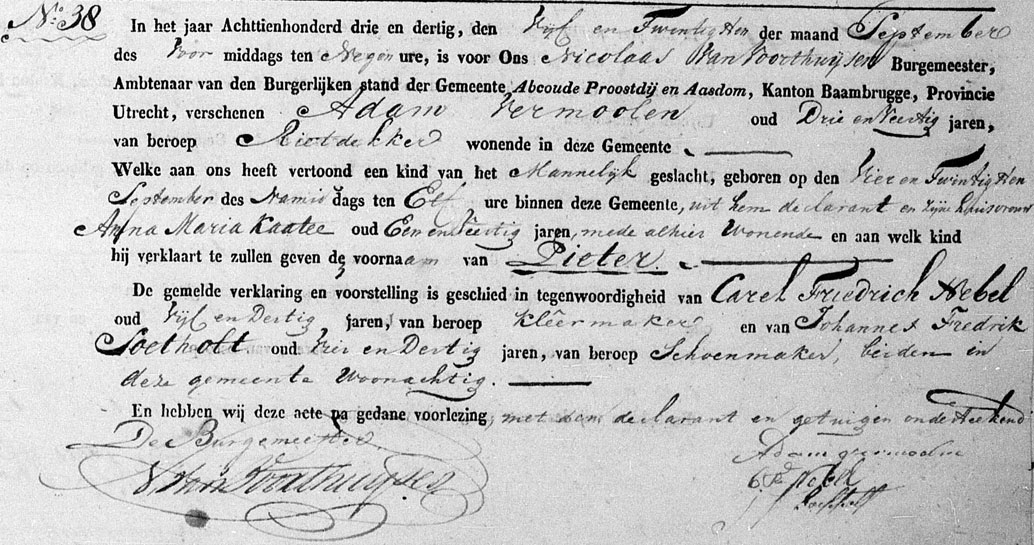 No. 38
In het jaar Achttienhonderd drie en dertig, den Vijf en Twintigsten der maand September
des Voor middags ten Negen ure, is voor Ons Nicolaas Van Voorthuijsen Burgemeester,
Ambtenaar van den Burgerlijken stand der Gemeente Abcoude Proostdij en Aasdom, Kanton Baambrugge, Provincie
Utrecht, verschenen Adam Vermoolen oud Drie en Veertig jaren,
van beroep Rietdekker wonende in deze Gemeente
Welke aan ons heeft vertoond een kind van het Mannelijk geslacht, geboren op den Vier en Twintigsten
September des Namid dags ten Elf ure binnen deze Gemeente, uit hem declarant en zijne huisvrouw
Anna Maria Kaatee oud Een en Veertig jaren, mede alhier Wonende en aan welk kind
hij verklaart te zullen geven de voornaam van Pieter.
De gemelde verklaring en voorstelling is geschied in tegenwoordigheid van Carel Friedrich Nebel
oud Vijf en Dertig jaren, van beroep kleêrmaker en van Johannes Fredrik
Soetholt oud Vier en Dertig jaren, van beroep Schoenmaker, beiden in
deze gemeente Woonachtig.
En hebben wij deze acte na gedane voorlezing, met den declarant en getuigen onderteekend
De Burgemeester
N Van Voorthuijsen
Adam vermoolen
C F Nebel